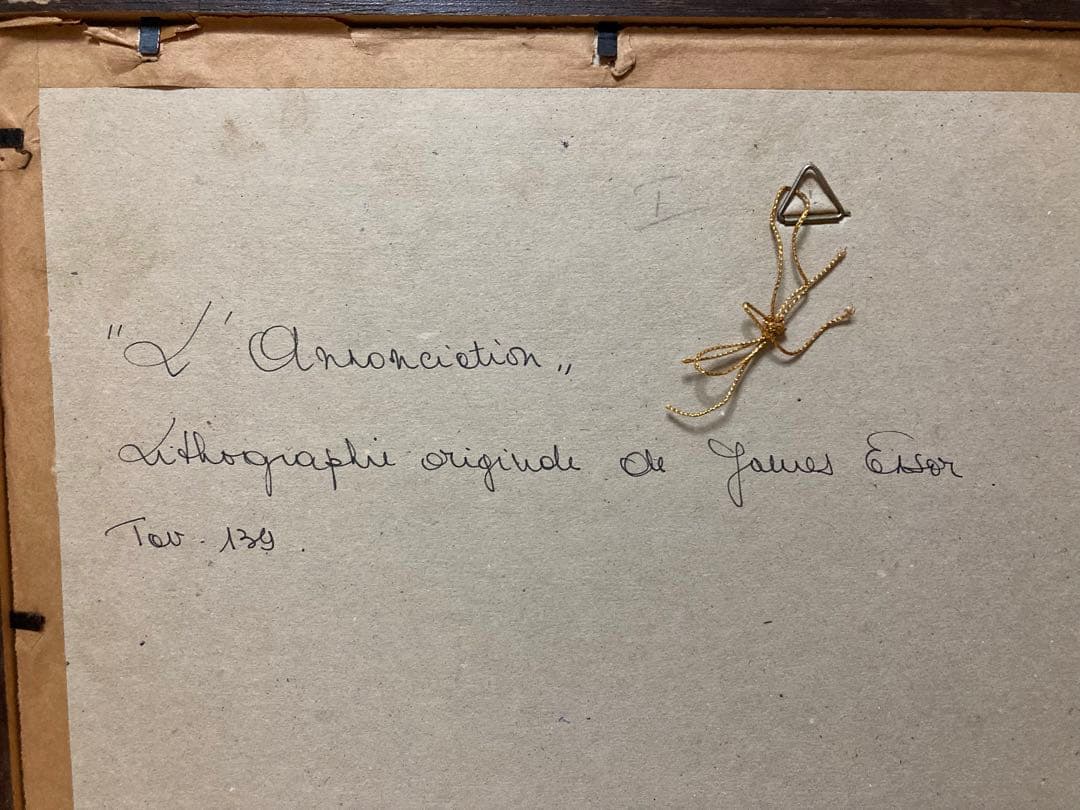 I
"L'Annonciation„
Lithographie originale de James Ensor
Tav. 139.